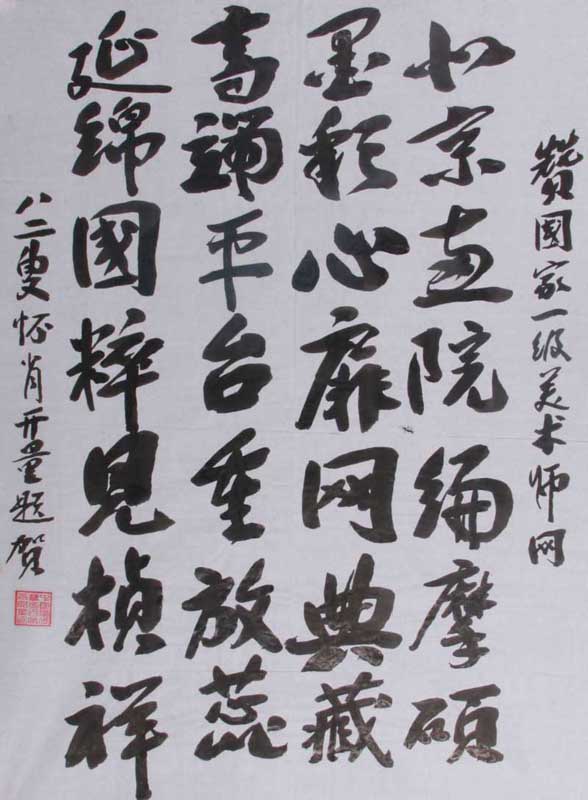 赞國家一级美术师网
北京画院编摩硕
墨彩心扉网典藏
高端平台重放蕊
延綿國粹見楨祥
八二叟怀肖开童题贺